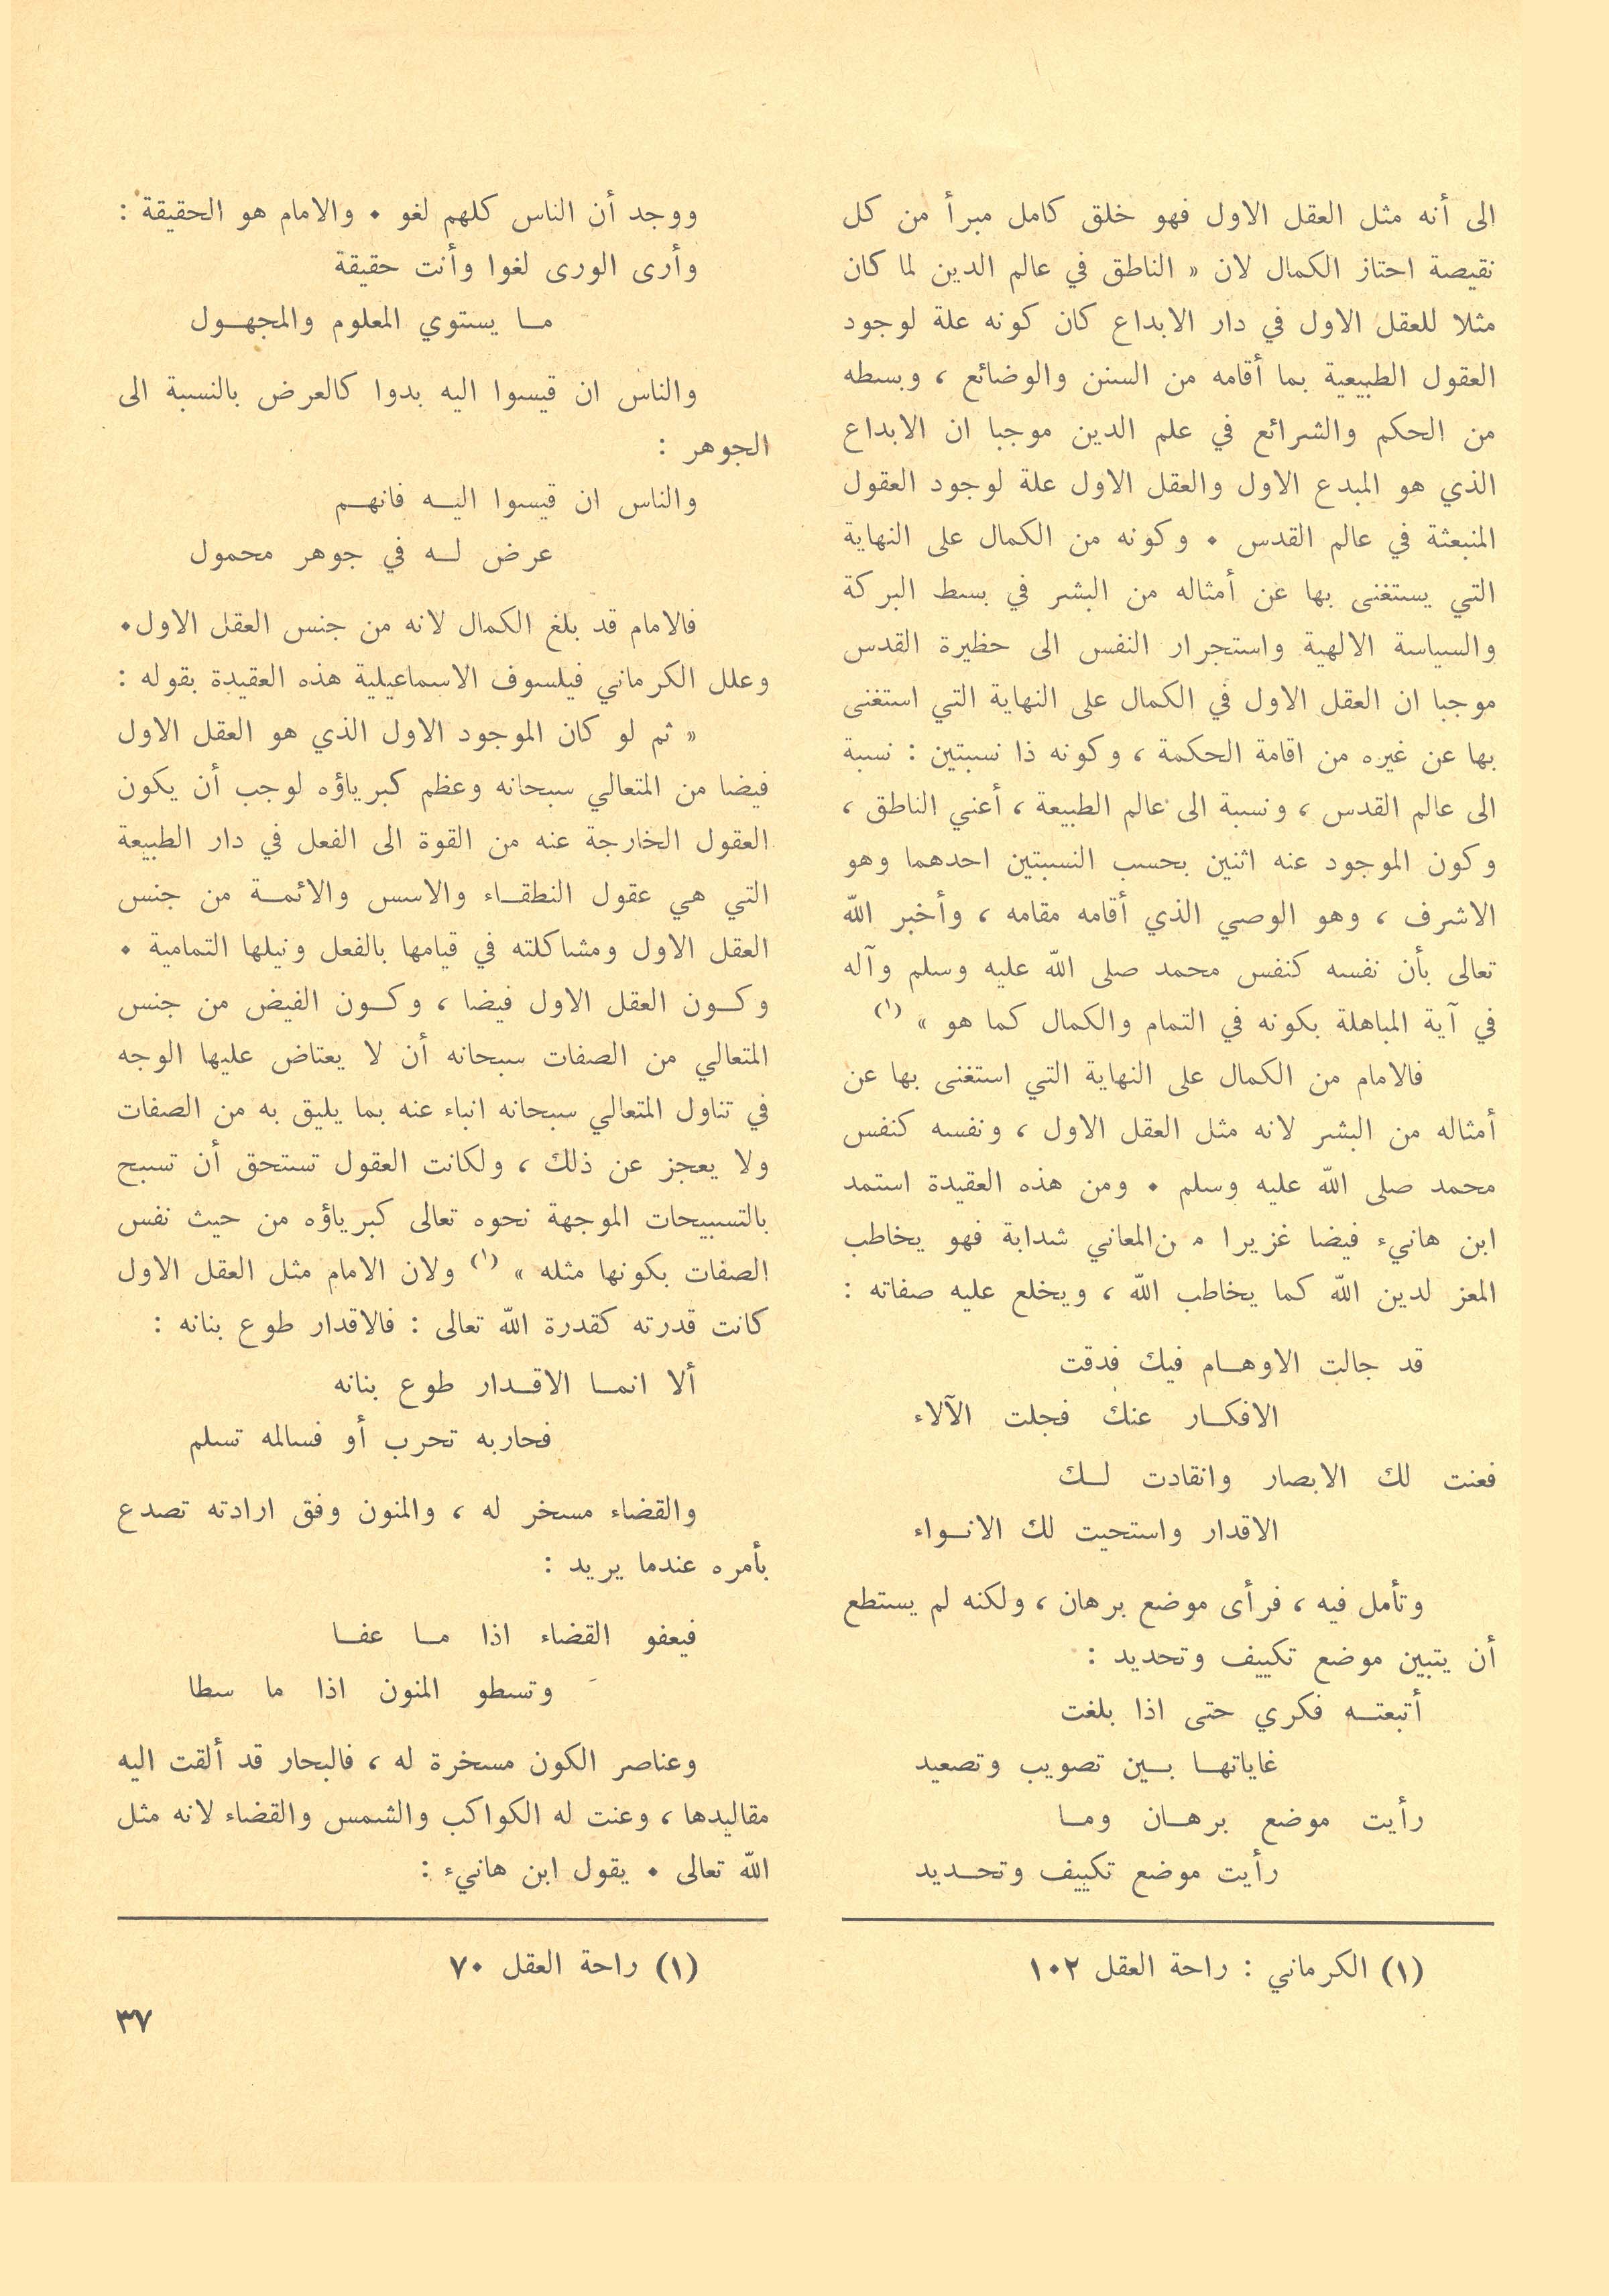 الى أنه مثل العقل الاول فهو خلق كامل مبرأ من كل
نقيصة احتاز الكمال لان « الناطق في عالم الدين لما كان
مثلا للعقل الاول في دار الابداع كان كونه علة لوجود
العقول الطبيعية بما أقامه من السنن والوضائع ، وبسطه
من الحكم والشرائع في علم الدين موجبا ان الابداع
الذي هو المبدع الاول والعقل الاول علة لوجود العقول
المنبعثة في عالم القدس . وكونه من الكمال على النهاية
التي يستغنى بها عن أمثاله من البشر في بسط البركة
والسياسة الالهية واستجرار النفس الى حظيرة القدس
موجبا ان العقل الاول في الكمال على النهاية التي استغنى
بها عن غيره من اقامة الحكمة ، وكونه ذا نسبتين : نسبة
الى عالم القدس ، ونسبة الى عالم الطبيعة ، أعني الناطق ،
وكون الموجود عنه اثنين بحسب النسبتين احدهما وهو
الاشرف ، وهو الوصي الذي أقامه مقامه ، وأخبر الله
تعالى بأن نفسه كنفس محمد صلى الله عليه وسلم وآله
في آية المباهلة بكونه في التمام والكمال كما هو » (١)
فالامام من الكمال على النهاية التي استغنى بها عن
أمثاله من البشر لانه مثل العقل الاول ، ونفسه كنفس
محمد صلى الله عليه وسلم . ومن هذه العقيدة استمد
ابن هانيء فيضا غزيرا من المعاني شدابة فهو يخاطب
المعز لدين الله كما يخاطب الله ، ويخلع عليه صفاته :
قد جالت الاوهـام فيك فدقت
الافكـار عنك فجلت الآلاء
فعنت لك الابصار وانقادت لـك
الاقدار واستحيت لك الانـواء
وتأمل فيه ، فرأى موضع برهان ، ولكنه لم يستطع
أن يتبين موضع تكييف وتحديد :
أتبعتـه فكري حتى اذا بلغت
غاياتهـا بـين تصويب وتصعيد
رأيت موضع برهـان ومـا
رأيت موضع تكييف وتحـديد
(١) الكرماني : راحة العقل ١٠٢
ووجد أن الناس كلهم لغو . والامام هو الحقيقة :
وأرى الورى لغوا وأنت حقيقة
مـا يستوي المعلوم والمجهـول
والناس ان قيسوا اليه بدوا كالعرض بالنسبة الى
الجوهر :
والناس ان قيسوا اليـه فانهـم
عرض لـه في جوهر محمول
فالامام قد بلغ الكمال لانه من جنس العقل الاول.
وعلل الكرماني فيلسوف الاسماعيلية هذه العقيدة بقوله :
« ثم لو كان الموجود الاول الذي هو العقل الاول
فيضا من المتعالي سبحانه وعظم كبرياؤه لوجب أن يكون
العقول الخارجة عنه من القوة الى الفعل في دار الطبيعة
التي هي عقول النطقـاء والاسس والائمـة من جنس
العقل الاول ومشاكلته في قيامها بالفعل ونيلها التمامية .
وكـون العقل الاول فيضا ، وكـون الفيض من جنس
المتعالي من الصفات سبحانه أن لا يعتاض عليها الوجه
في تناول المتعالي سبحانه انباء عنه بما يليق به من الصفات
ولا يعجز عن ذلك ، ولكانت العقول تستحق أن تسبح
بالتسبيحات الموجهة نحوه تعالى كبرياؤه من حيث نفس
الصفات بكونها مثله » (١) ولان الامام مثل العقل الاول
كانت قدرته كقدرة الله تعالى : فالاقدار طوع بنانه :
ألا انمـا الاقـدار طوع بنانه
فحاربه تحرب أو فسالمه تسلم
والقضاء مسخر له ، والمنون وفق ارادته تصدع
بأمره عندما يريد :
فيعفو القضاء اذا مـا عفـا
وتسطو المنون اذا ما سطا
وعناصر الكون مسخرة له ، فالبحار قد ألقت اليه
مقاليدها ، وعنت له الكواكب والشمس والقضاء لانه مثل
الله تعالى . يقول ابن هانيء :
(١) راحة العقل ٧٠
٣٧